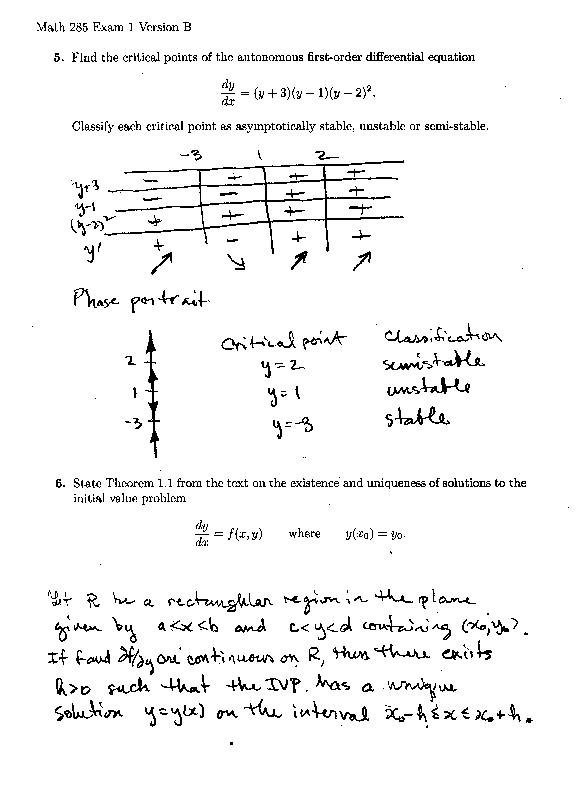 Math 285 Exam 1 Version B
5. Find the critical points of the autonomous first-order differential equation
dy/dx = (y + 3)(y − 1)(y − 2)².
Classify each critical point as asymptotically stable, unstable or semi-stable.
-3 1 2
y+3 − + + +
y-1 − − + +
(y-2)² + + + +
y' + − + +
↗ ↘ ↗ ↗
Phase portrait
Critical point Classification
2 y=2 semistable
1 y=1 unstable
-3 y=-3 stable
6. State Theorem 1.1 from the text on the existence and uniqueness of solutions to the
initial value problem
dy/dx = f(x, y) where y(x₀) = y₀.
Let R be a rectangular region in the plane
given by a<x<b and c<y<d containing (x₀,y₀).
If f and ∂f/∂y are continuous on R, then there exists
h>0 such that the IVP has a unique
solution y=y(x) on the interval x₀-h≤x≤x₀+h.